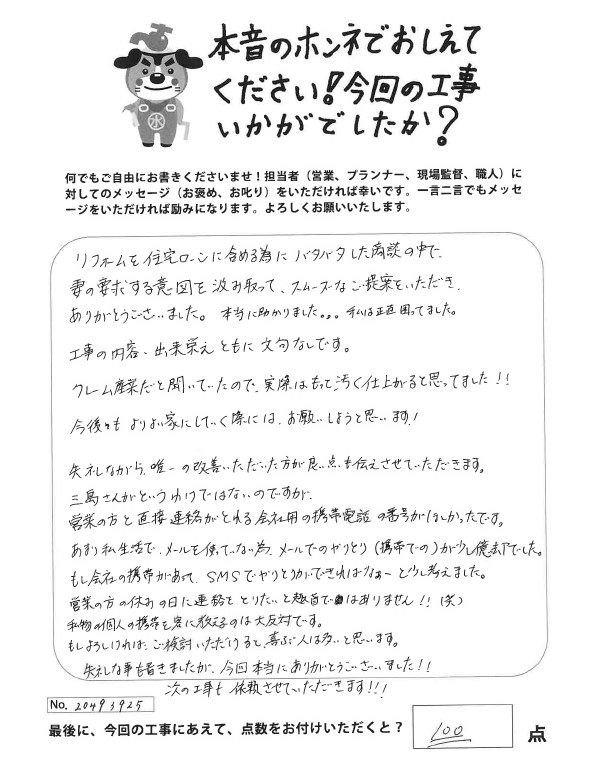 本音のホンネでおしえて
ください!今回の工事
いかがでしたか?
水
何でもご自由にお書きくださいませ!担当者（営業、プランナー、現場監督、職人）に
対してのメッセージ（お褒め、お叱り）をいただければ幸いです。一言二言でもメッセ
ージをいただければ励みになります。よろしくお願いいたします。
リフォームを住宅ローンに含める為にバタバタした商談の中で、
妻の要求する意図を汲み取って、スムーズなご提案をいただき、
ありがとうございました。本当に助かりました。。。私は正直困ってました。
工事の内容、出来栄えともに文句なしです。
クレーム産業だと聞いていたので、実際はもっと汚く仕上がると思ってました!!
今後々もよりよい家にしていく際には、お願いしようと思います!
失礼しながら、唯一の改善いただいた方が良い点も伝えさせていただきます。
三島さんがというわけではないのですが、
営業の方と直接連絡がとれる会社用の携帯電話の番号がほしかったです。
あまり私生活で、メールを使っていない為、メールでのやりとり（携帯での）が少し億劫でした。
もし会社の携帯があって、SMSでやりとりができればなぁーと少し考えました。
営業の方の休みの日に連絡をとりたいと趣旨ではありません!!（笑）
私物の個人の携帯を客に教えるのは大反対です。
もしよろしければ、ご検討いただけると、喜ぶ人は多いと思います。
失礼な事も書きましたが、今回本当にありがとうございました!!
次の工事も依頼させていただきます!!!
No. 20493925
最後に、今回の工事にあえて、点数をお付けいただくと? 100 点